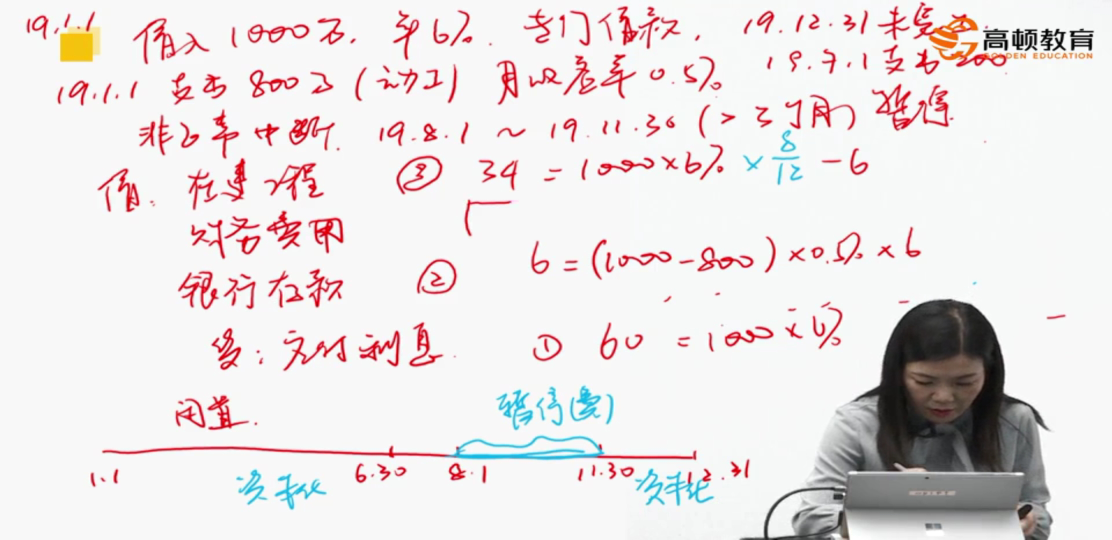 19.1.1 借入1000万, 年6%. 专门借款, 19.12.31未完工.
高顿教育
GOLDEN EDUCATION
19.1.1 支出800万(动工) 月收益率0.5% 19.7.1支出200
非正常中断. 19.8.1 ~ 19.11.30 (>3个月) 暂停
借: 在建工程 ③ 34 = 1000×6% × 8/12 - 6
财务费用
银行存款 ② 6 = (1000-800)×0.5%×6
贷: 应付利息. ① 60 = 1000×6%
闲置. 暂停(费)
1.1 6.30 8.1 11.30 12.31
资本化 资本化